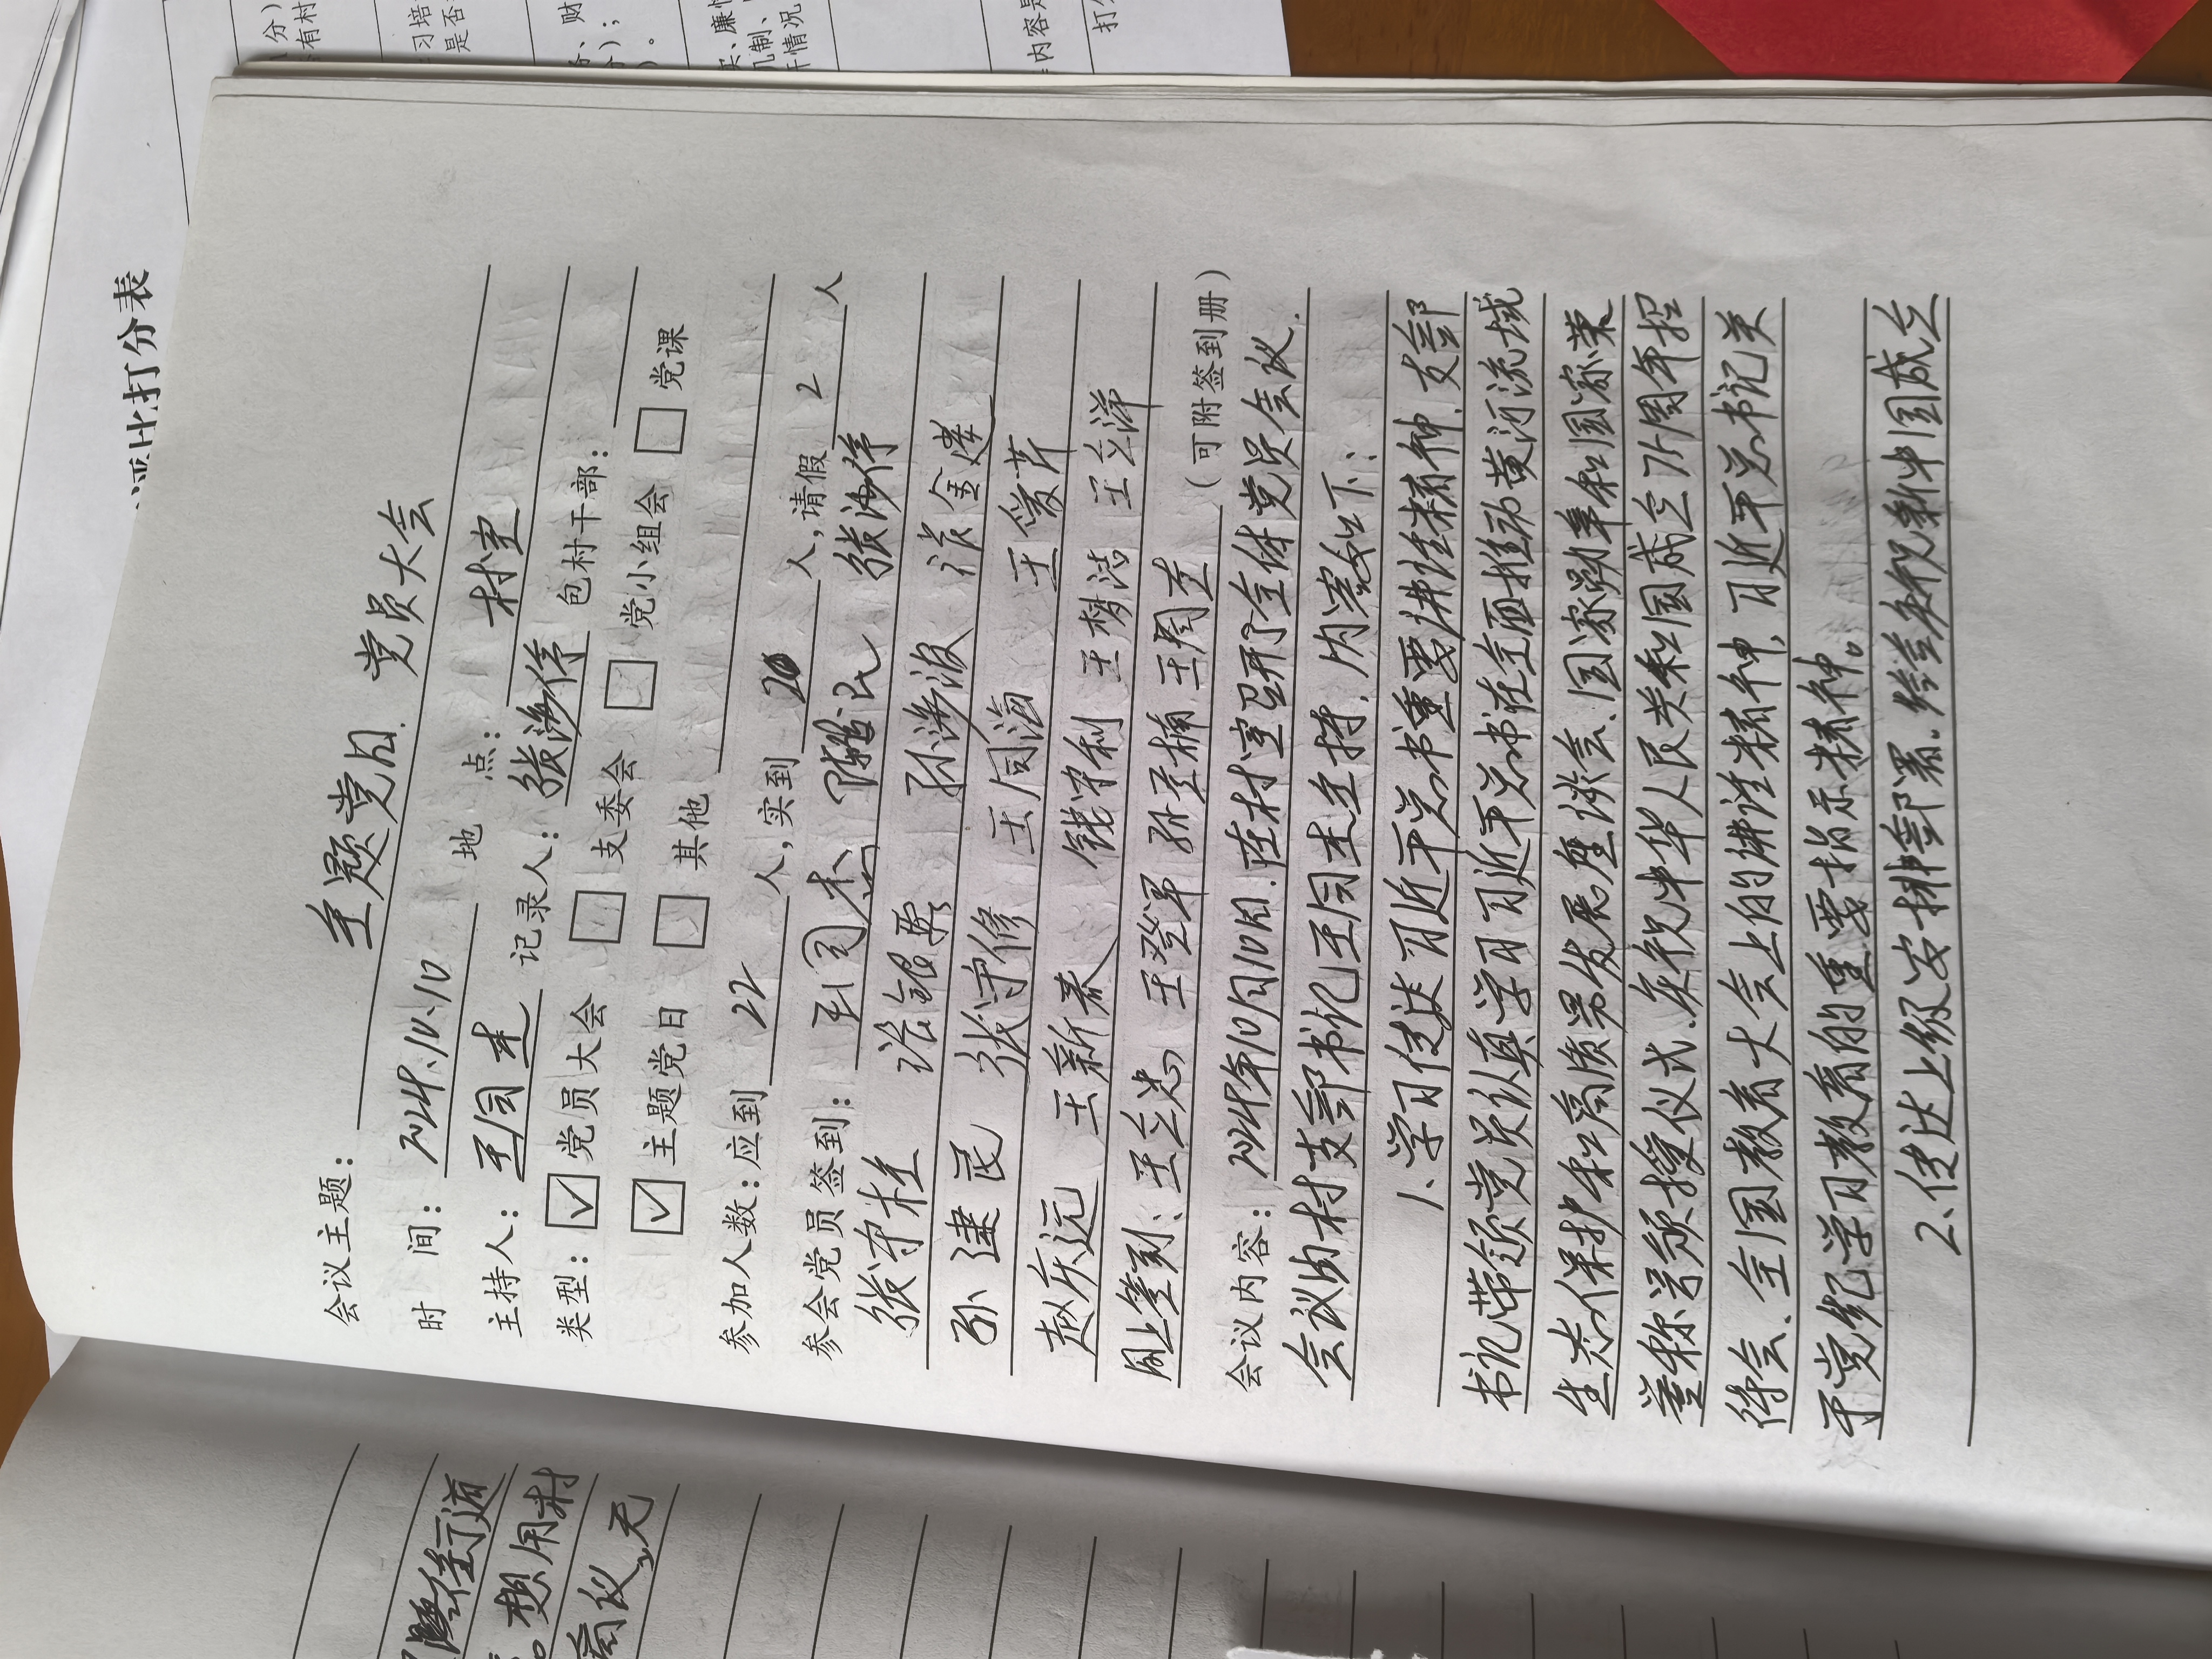 评比打分表
会议主题： 主题党日、党员大会
时 间： 2024.10.10 地 点： 村室
主持人： 王同杰 记录人： 张海停 包村干部：
类型： ☑ 党员大会 □ 支委会 □ 党小组会 □ 党课
☑ 主题党日 □ 其他
参加人数：应到 22 人，实到 20 人，请假 2 人
参会党员签到： 王同杰 张海停
张守柱 孙海波 金建
孙建民 张守修 王同海 王爱芹
赵庆远 王新春 钱守利 王梦洁 王立洋
周上奎 王立忠 王登军 孙景楠 王周全
（可附签到册）
会议内容： 2024年10月10日，在村室召开了全体党员会议，
会议由村支部书记王同杰主持，内容如下：
1、学习传达习近平总书重要讲话精神，支部
书记带领党员认真学习习近平总书在全面推动黄河流域
生态保护和高质量发展座谈会、国家勋章和国家荣
誉称号颁授仪式、庆祝中华人民共和国成立75周年招
待会、全国教育大会上的讲话精神，习近平总书记关
于党纪学习教育的重要指示精神。
2、传达上级安排部署。结合庆祝新中国成立
想用村